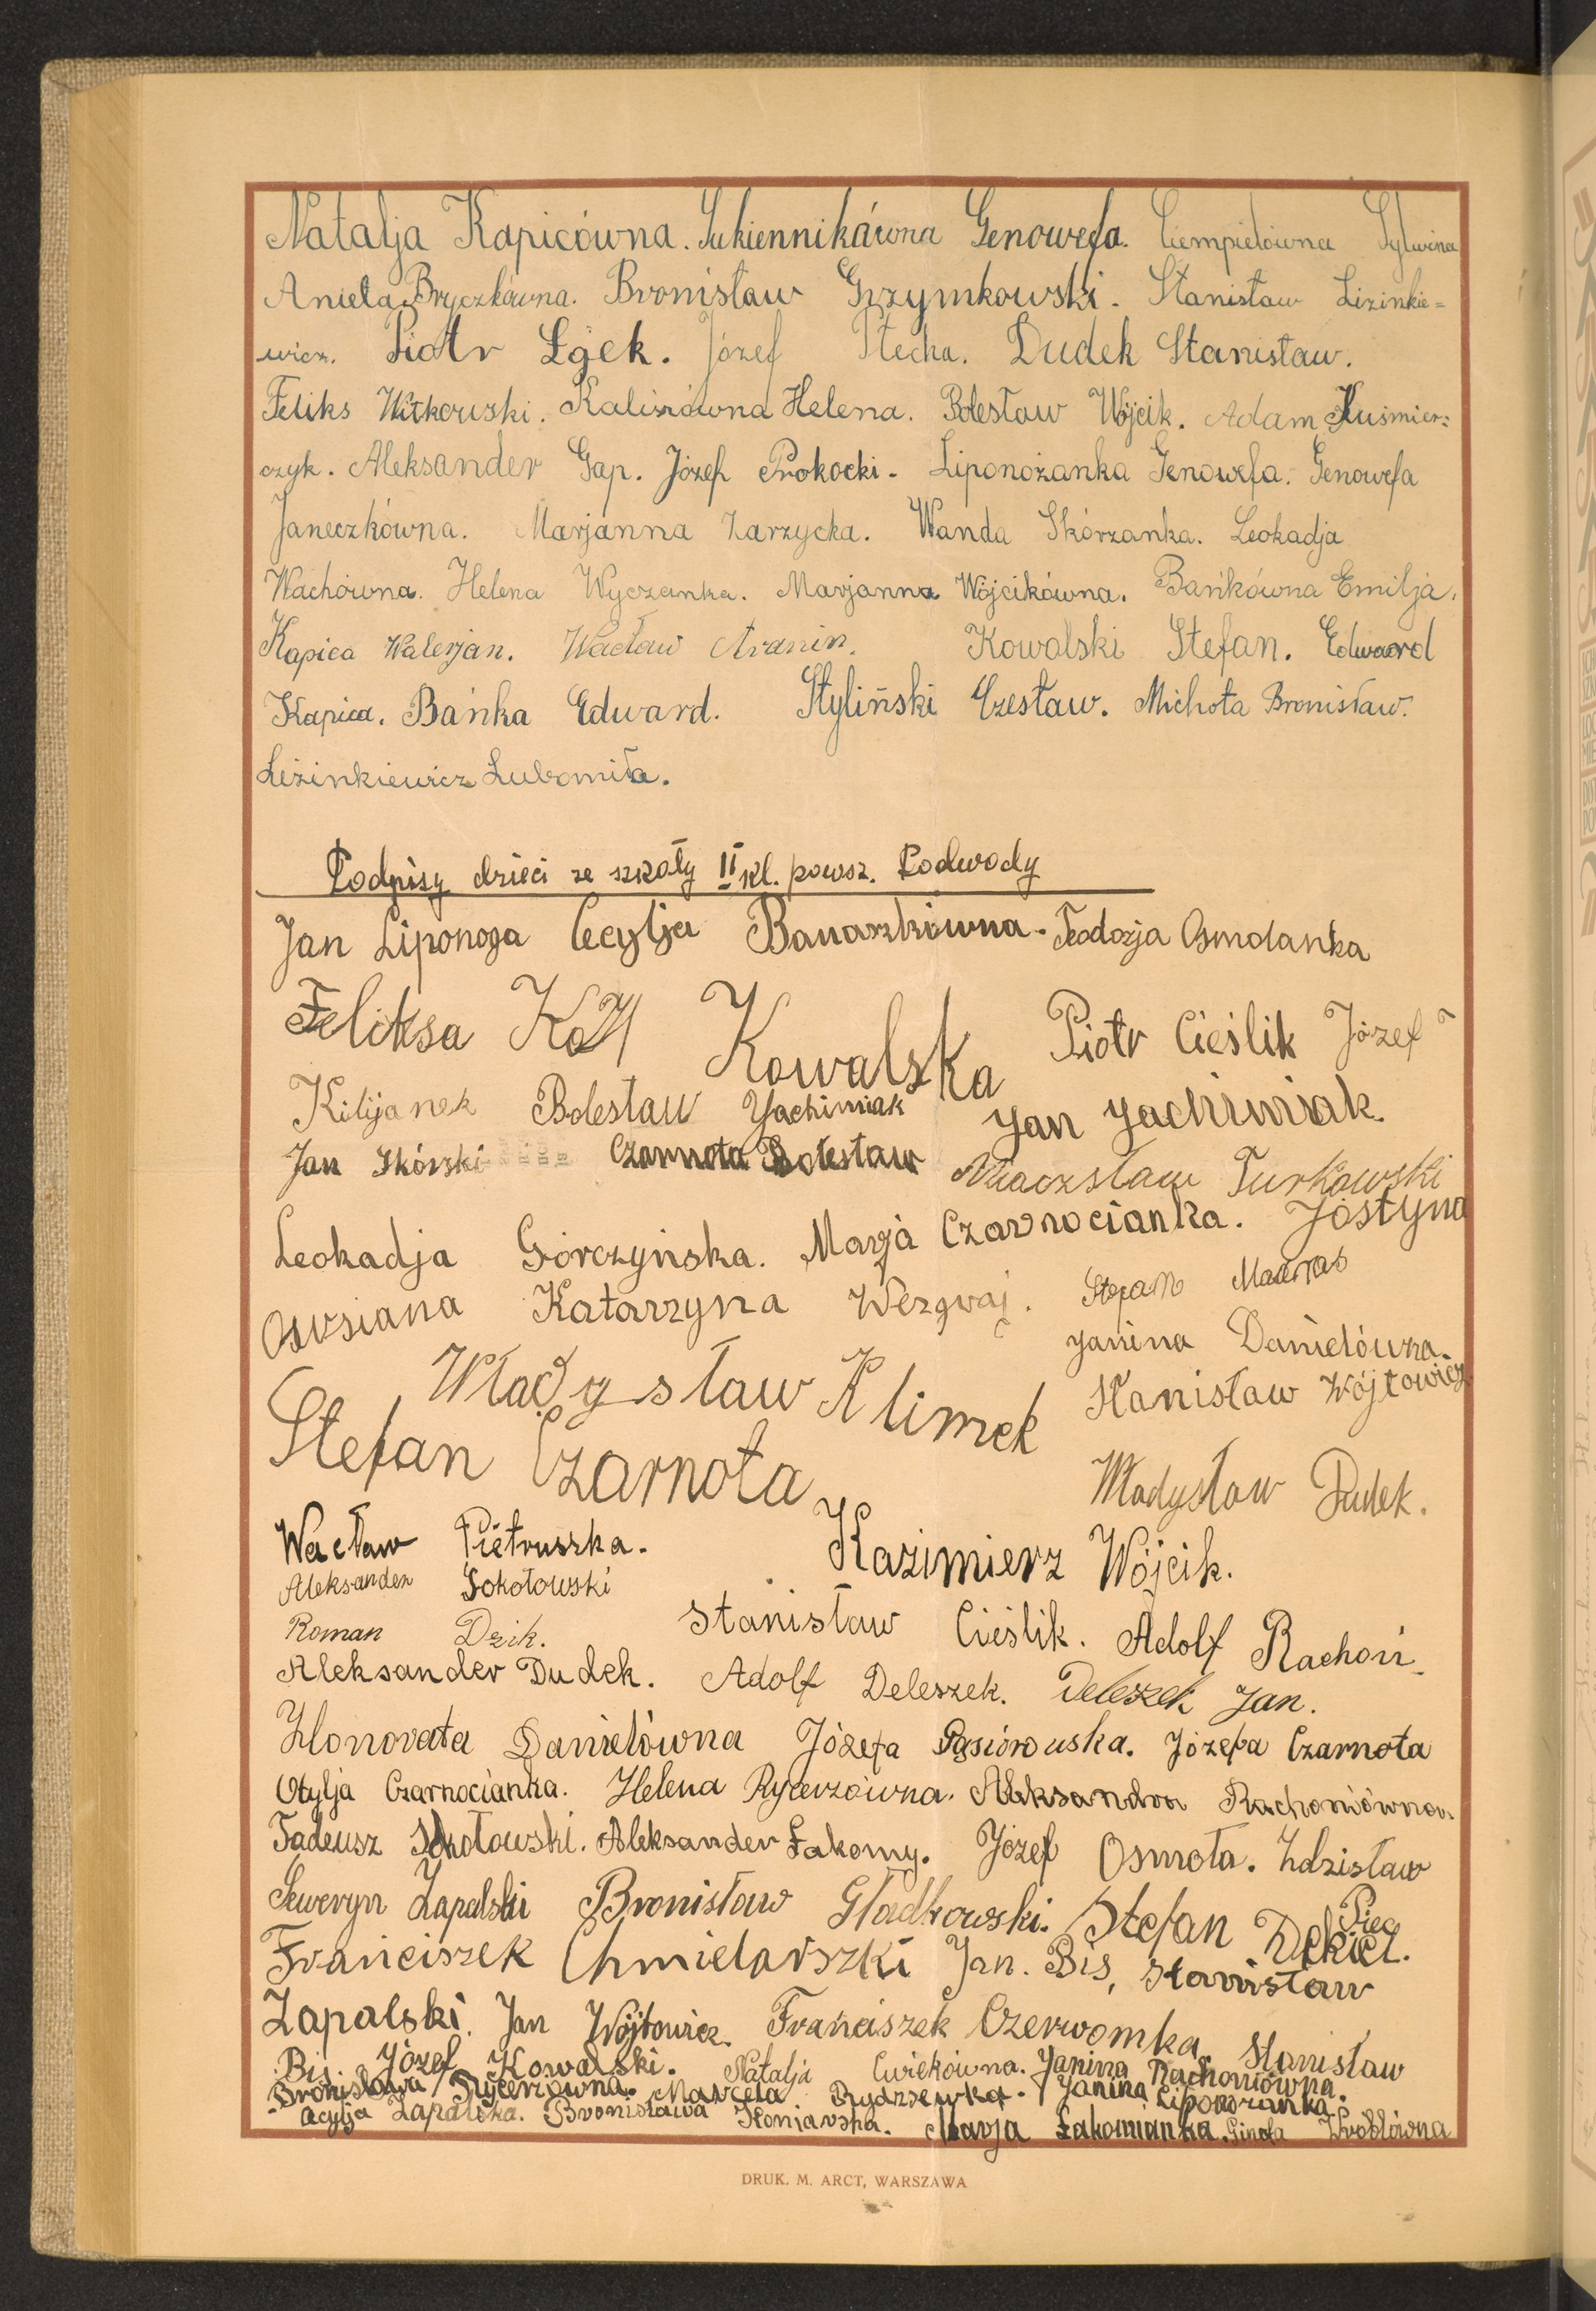 Natalja Kapicówna. Sukiennikówna Genowefa. Ciempielówna Sylwina
Aniela Bryczkówna. Bronisław Grzymkowski. Stanisław Lizinkie=
wicz. Piotr Łgek. Józef Stecka. Dudek Stanisław.
Feliks Witkowski. Kaliszówna Helena. Bolesław Wójcik. Adam Kuśmier=
czyk. Aleksander Gap. Józef Prokocki. Liponożanka Genowefa. Genowefa
Janeczkówna. Marjanna Zarzycka. Wanda Skórzanka. Leokadja
Wachówna. Helena Wyczanka. Marjanna Wójcikówna. Bańkówna Emilja.
Kapica Walerjan. Wacław Aranin. Kowalski Stefan. Edward
Kapica. Bańka Edward. Styliński Czesław. Michota Bronisław.
Leżinkiewicz Lubomiła.
Podpisy dzieci ze szkoły II kl. powsz. Podwody
Jan Liponoga Cecylja Banaszkówna. Teodozja Osmolanka
Feliksa Kowalska Piotr Cieślik Józef
Kilijanek Bolesław Yachimiak Jan Yachimiak.
Jan Skórski Czarnota Bolesław Mieczsław Turkowski
Leokadja Górczyńska. Marja Czarnocianka. Jóstyna
Owsiana Katarzyna Wezgraj. Stefan Mazuras
Janina Danielówna.
Władysław Klimek Stanisław Wójtowicz
Stefan Czarnota Władysław Dudek.
Wacław Pietruszka. Kazimierz Wójcik.
Aleksander Sokołowski
Roman Dzik. Stanisław Cieślik. Adolf Rachoń
Aleksander Dudek. Adolf Deleszek. Deleszek Jan.
Honorata Danielówna Józefa Gąsiorowska. Józefa Czarnota
Otylja Czarnocianka. Helena Rycerzówna. Aleksandra Rachoniówna.
Tadeusz Sokołowski. Aleksander Łakomy. Józef Osmoła. Zdzisław
Seweryn Zapalski Bronisław Gładkowski. Stefan Dekiel. Piec
Franciszek Chmielarszki Jan. Bis, Stanisław
Zapalski. Jan Wójtowicz. Franciszek Czerwomka. Stanisław
Bis. Józef Kowalski. Natalja Ćwiekówna. Janina Rachoniówna.
Bronisława Rycerzówna. Marcela Rydzewska. Janina Liponożanka.
Cecylja Zapalska. Bronisława Słoniarska. Marja Łakomianka. Ginefa Wróblówna